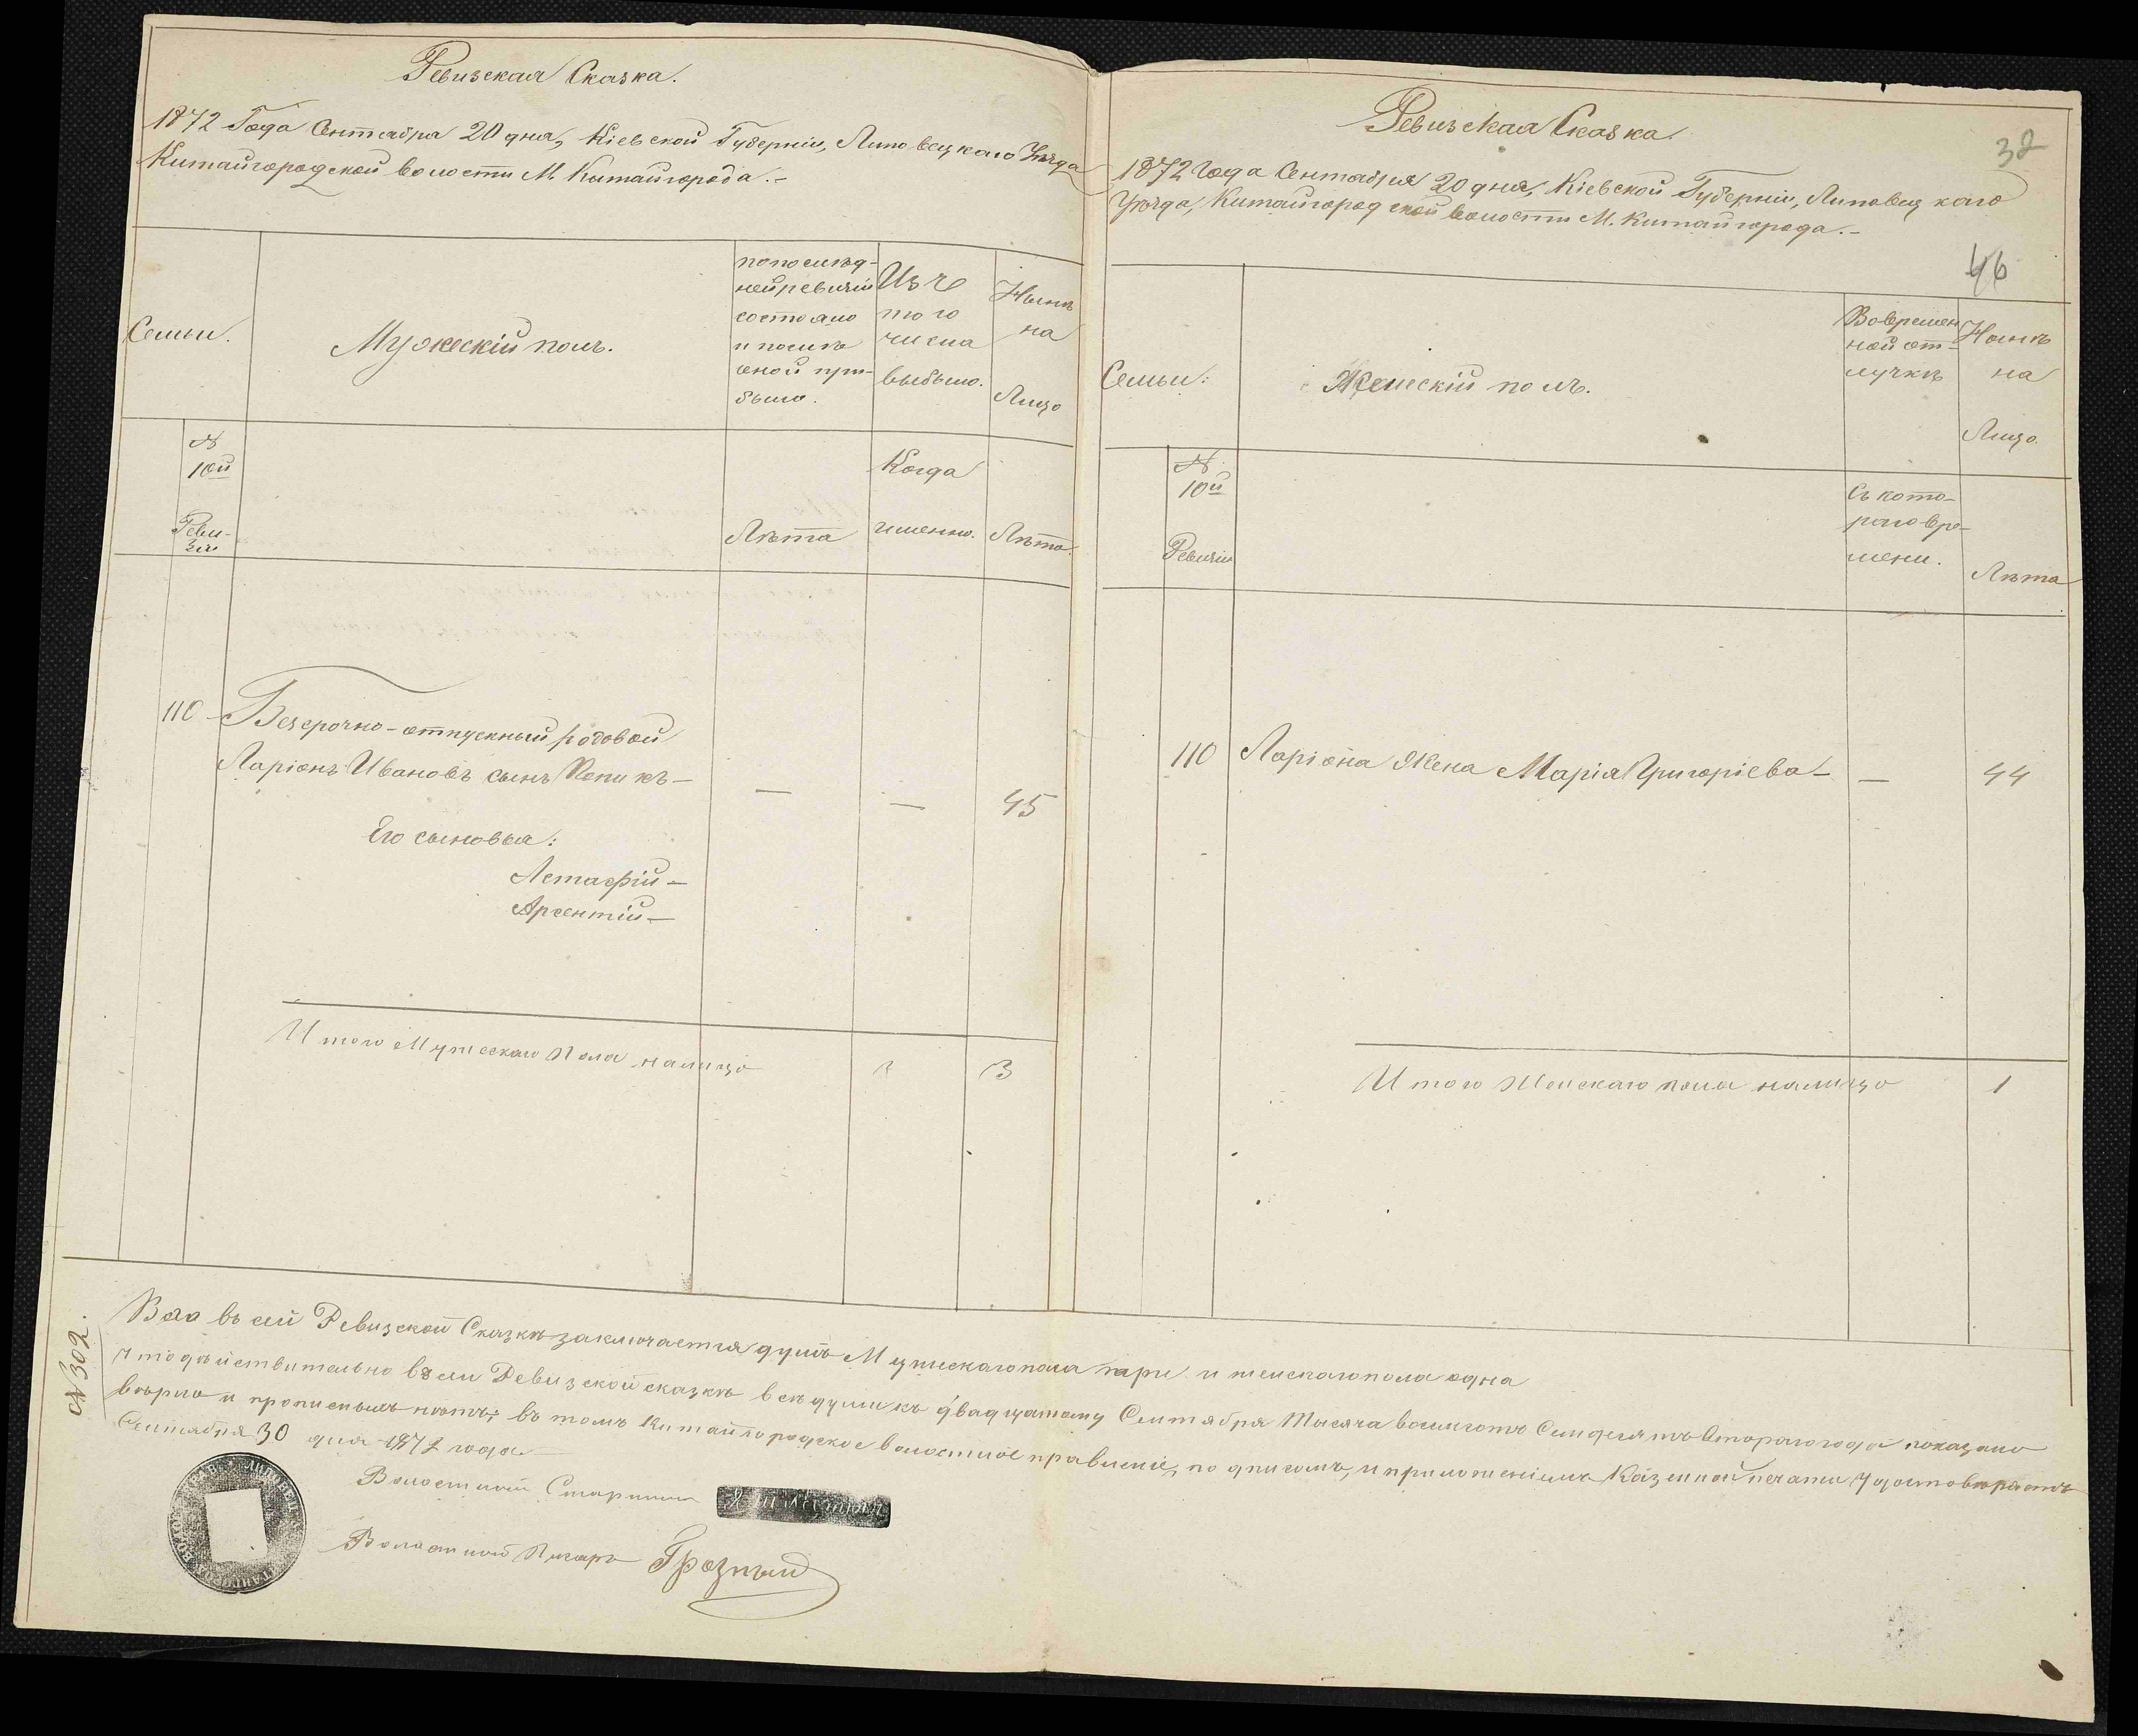 Ревизская Сказка.
1872 Года Сентября 20 дня, Кіевской Губерніи, Липовецкаго Уѣзда
Китайгородской волости М. Китайгорода.-
Семьи.
Мужескій полъ.
по послѣд-
ней ревизіи
состояло
и послѣ
оной при-
было.
Изъ
того
числа
выбыло.
Нынѣ
на
Лицо
№
10й
Реви-
зіи
Лѣта
Когда
именно.
Лѣта.
110
Безсрочно-отпускный рядовой
Ларіонъ Ивановъ сынъ
—
—
45
Его сыновья:
Астафій —
Арсентій —
Итого Мужескаго Пола налицо
3
Ревизская Сказка
32
1872 Года Сентября 20 дня, Кіевской Губерніи, Липовецкаго
Уѣзда, Китайгородской волости М. Китайгорода.-
46
Семьи:
Женескій полъ.
Во времен
ной от-
лучкѣ
Нынѣ
на
Лицо.
№
10й
Ревизіи
Съ кото-
раго вре-
мени.
Лѣта
110
Ларіона Жена Марія Григоріева —
—
44
Итого Женскаго пола налицо
1
№ 302.
въ сей Ревизской Сказкѣ заключается душъ Мужескаго пола три и женскаго пола одна
что дѣйствительно въ сей Ревизской сказкѣ всѣ души къ двадцатому Сентября Тысяча восемьсотъ Семдесятъ втораго года показано
вѣрно и прописныхъ нѣтъ; въ томъ Китайгородское волостное правленіе, по дписомъ, и приложеніемъ Казенной печати Удостовѣряетъ
Сентября 30 дня 1872 года
Волостной Старшина
Волостной Писарь Грозный